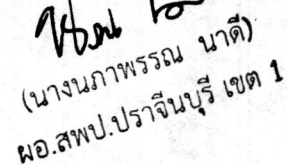 (นางนภาพรรณ นาดี)
ผอ.สพป.ปราจีนบุรี เขต 1